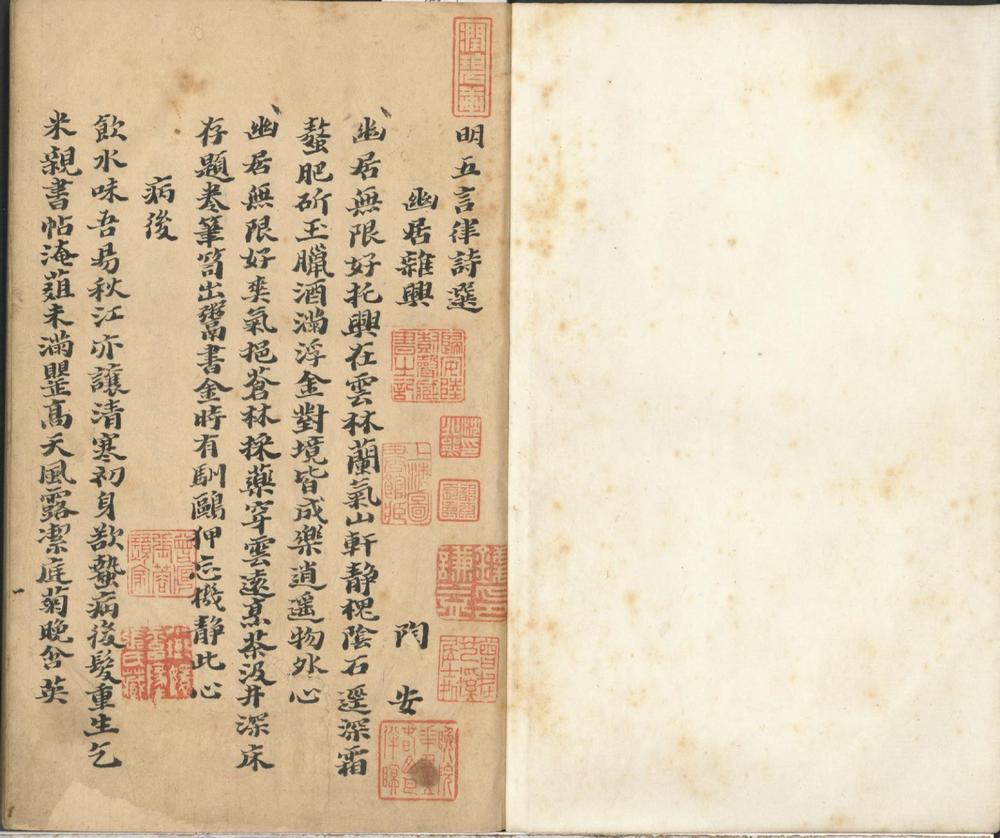 明五言律詩選
幽居雜興 閔 安
幽居無限好托興在雲林蘭氣山軒靜槐陰石逕深霜
螯肥斫玉臘酒滿浮金對境皆成樂逍遥物外心
幽居無限好爽氣挹蒼林採藥穿雲遠烹茶汲井深床
存題卷筆笥出鬻書金時有馴鷗狎忘機靜此心
病後
飲水味吾易秋江亦讓清寒初身欲蟄病後髮重生乞
米親書帖淹葅未滿罌高天風露潔庭菊晚含英